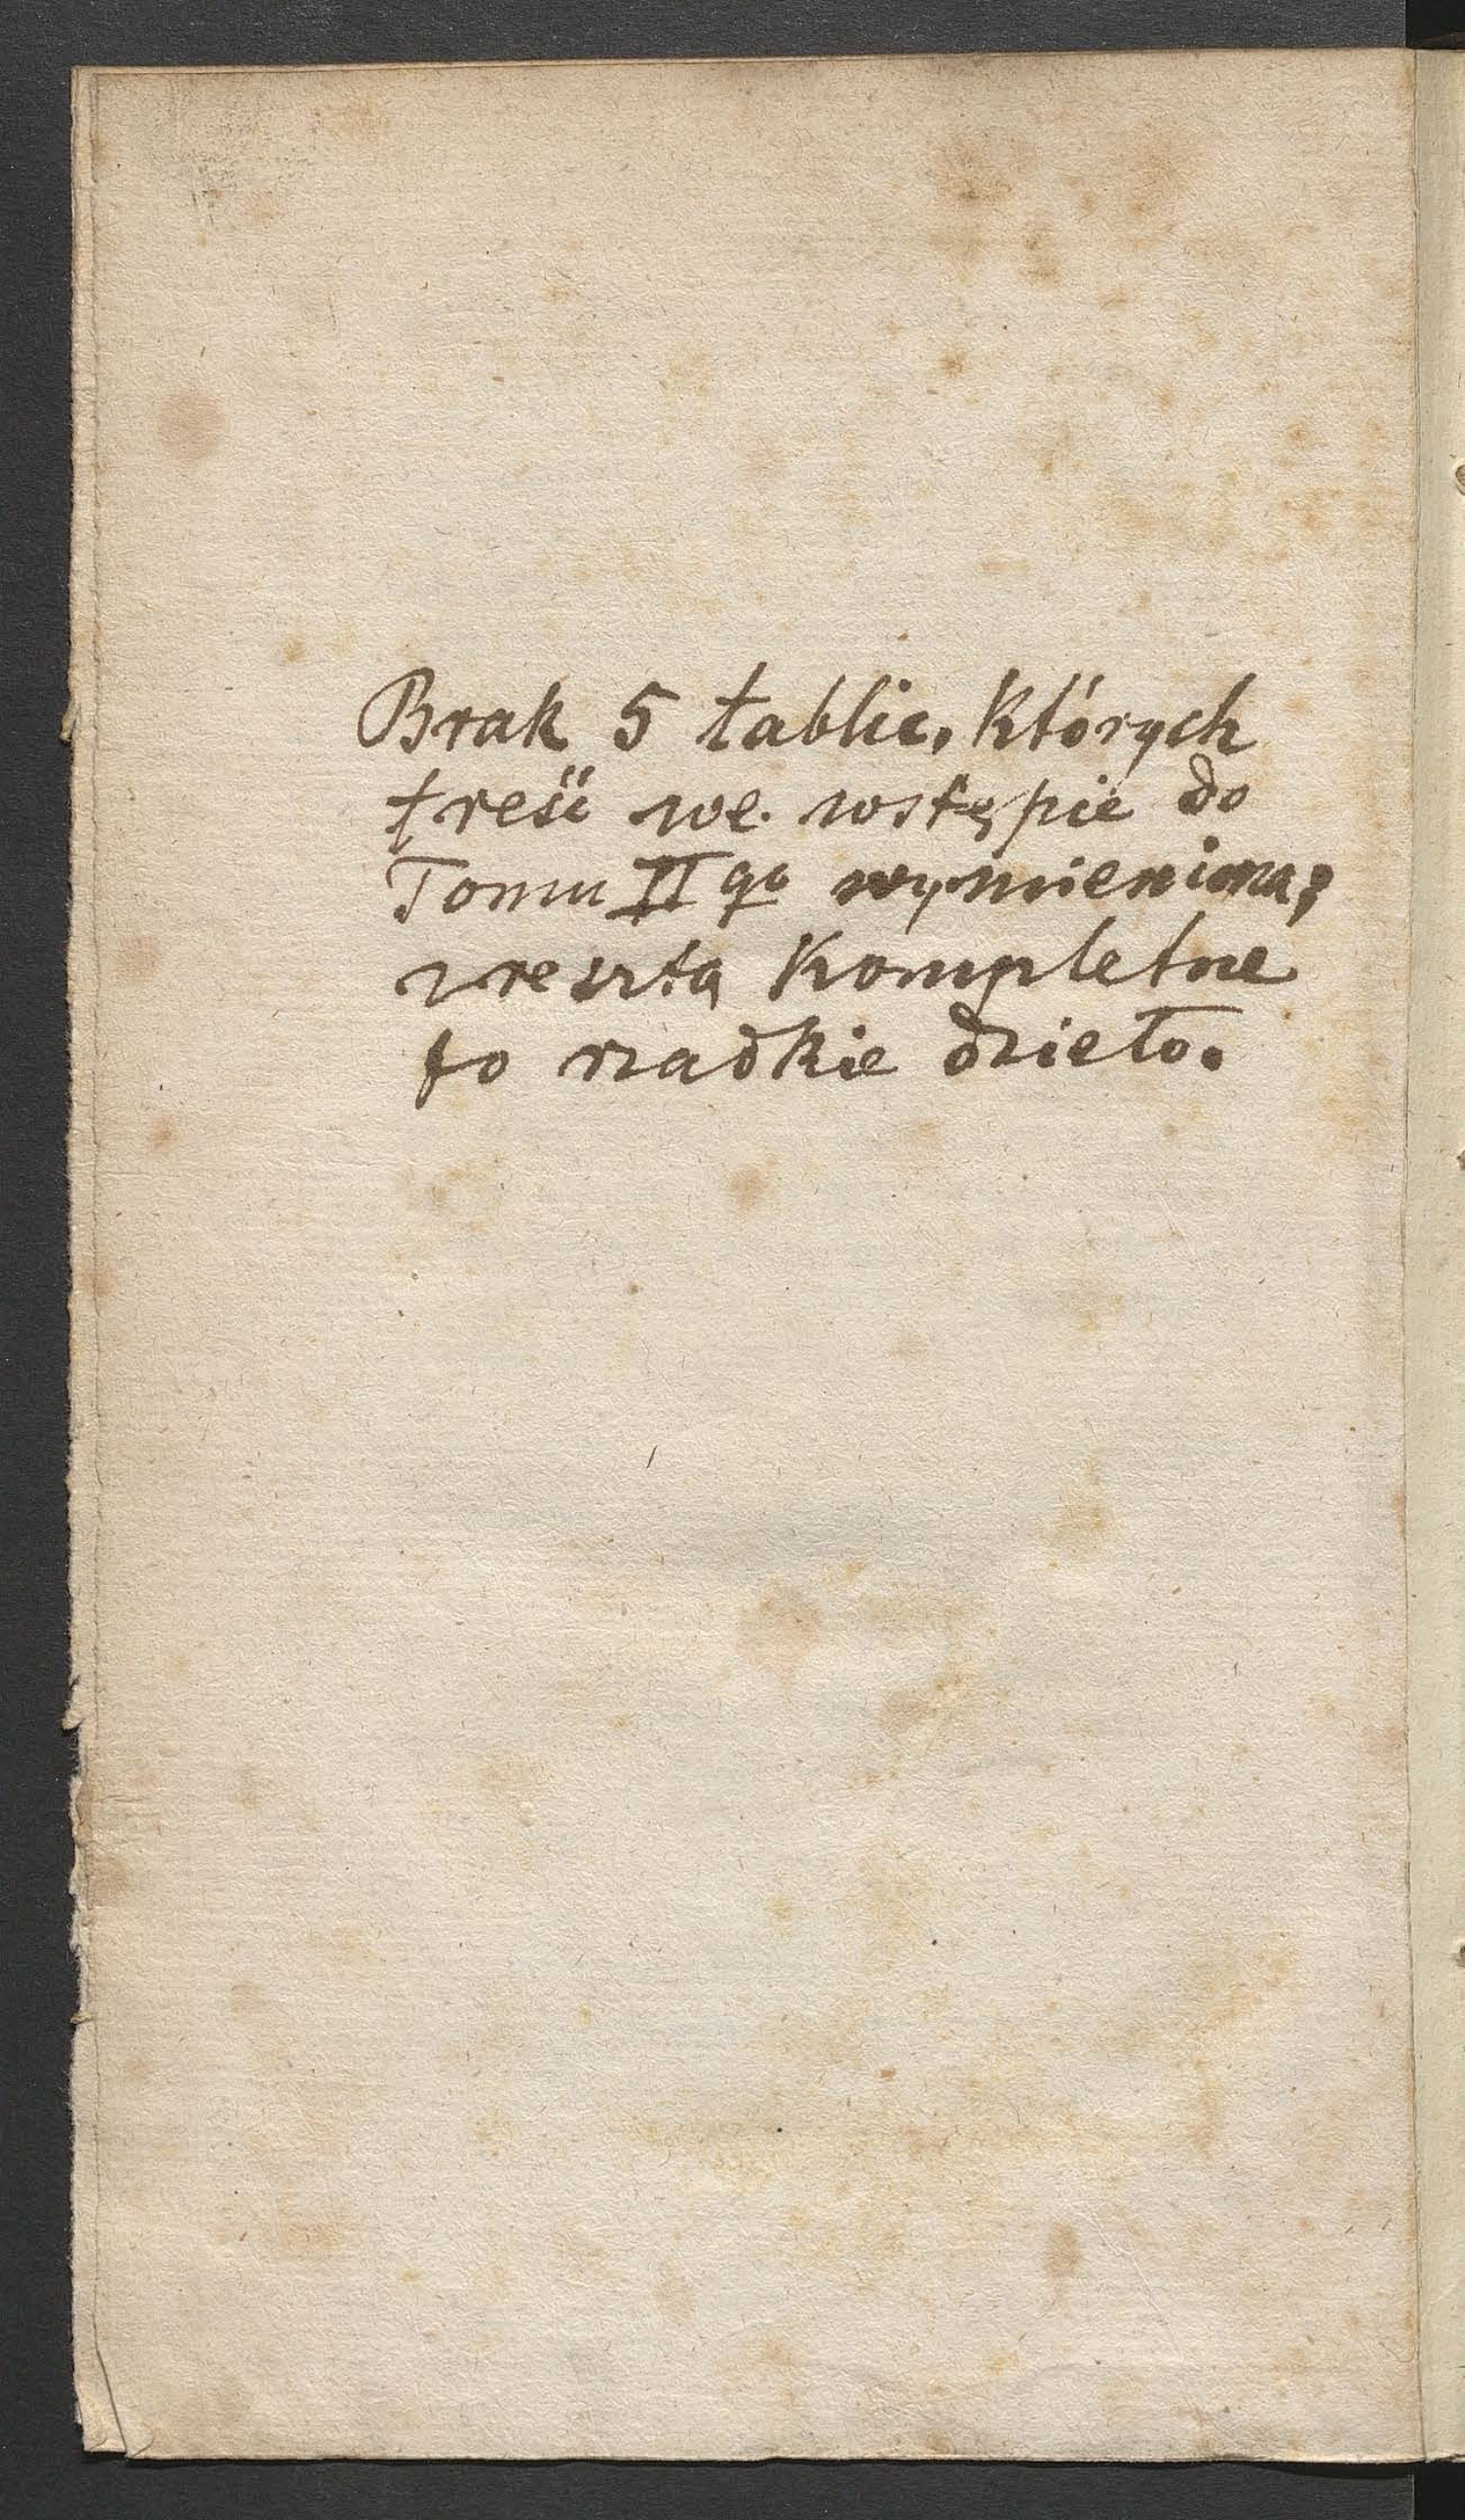 Brak 5 tablic, których
treść we wstępie do
Tomu II go wymieniona;
zresztą kompletne
to rzadkie dzieło.